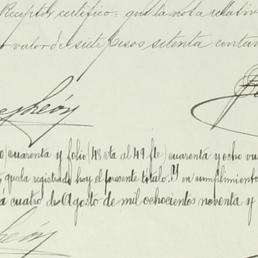 Receptor certifico, que la nota relativa
valor de siete pesos setenta centav
cuarenta y folio (48 vta al 49 fte) cuarenta y ocho vu
queda registrado hoy el presente título. Y en cumplimiento
a cuatro de Agosto de mil ochocientos noventa y